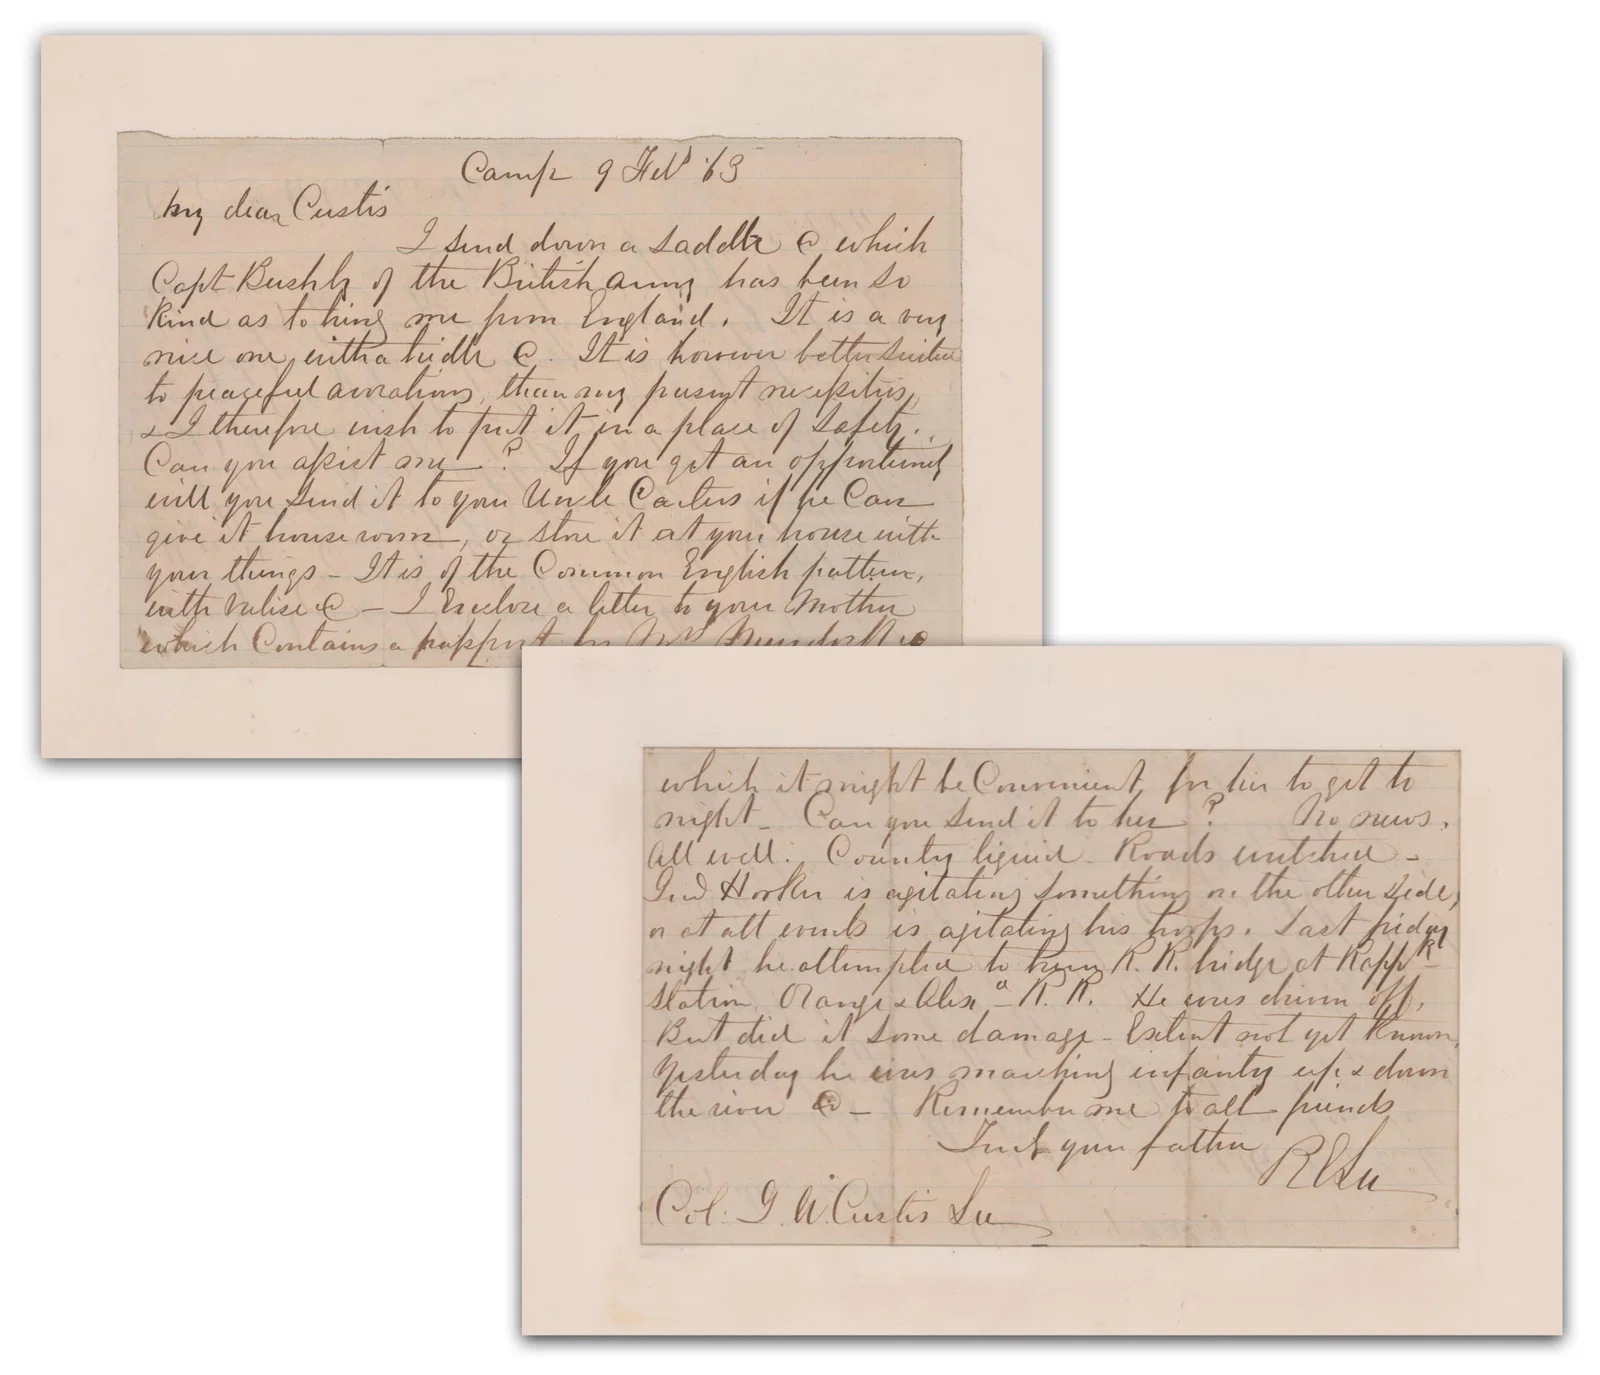 Camp 9 Feb '63
My dear Custis
I send down a saddle &c which
Capt Bushby of the British army has been so
kind as to bring me from England. It is a very
nice one, with a bridle &c. It is however better suited
to peaceful avocations, than my present necessities,
& I therefore wish to put it in a place of safety.
Can you assist me? If you get an opportunity
will you send it to your Uncle Carters if he can
give it house room, or store it at your house with
your things - It is of the Common English pattern,
with valise &c - I Enclose a letter to your Mother
which Contains a passport for Mrs
which it might be Convenient for her to get to
night - Can you send it to her? No news.
All well. County liquid - Roads wretched -
Genl Hooker is agitating something on the other side,
or at all events is agitating his troops. Last friday
night he attempted to burn R. R. bridge at Rappk
Station Orange & Alexa R. R. He was driven off,
But did it some damage - Extent not yet known,
Yesterday he was marching infantry up & down
the river &c - Remember me to all friends
Truly your father RELee
Col: G. W. Custis Lee